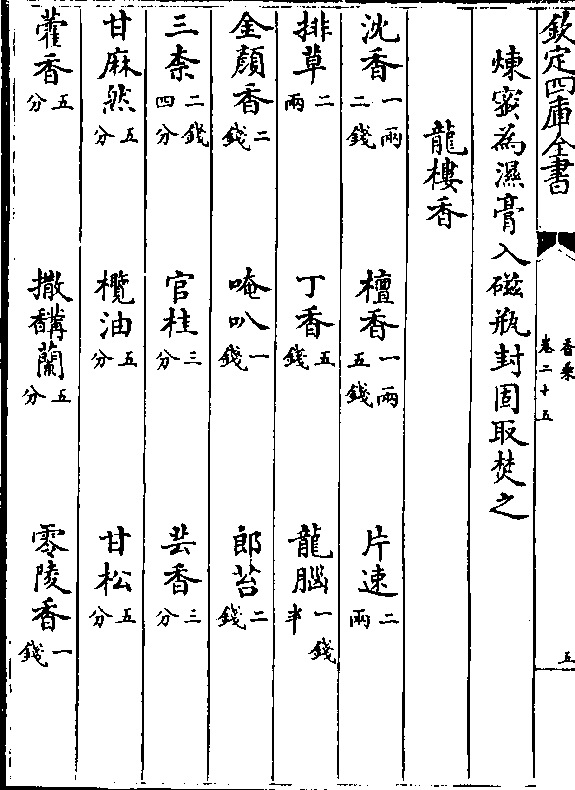 欽定四庫全書
香乘
卷二十五
五
煉蜜為濕膏入磁瓶封固取焚之
龍樓香
沈香一兩二錢　檀香一兩五錢　片速二兩
排草二兩　丁香五錢　龍腦一錢半
金顏香二錢　唵叭一錢　郎苔二錢
三柰二錢四分　官桂三分　芸香三分
甘麻然五分　欖油五分　甘松五分
藿香五分　撒𩡝蘭五分　零陵香一錢